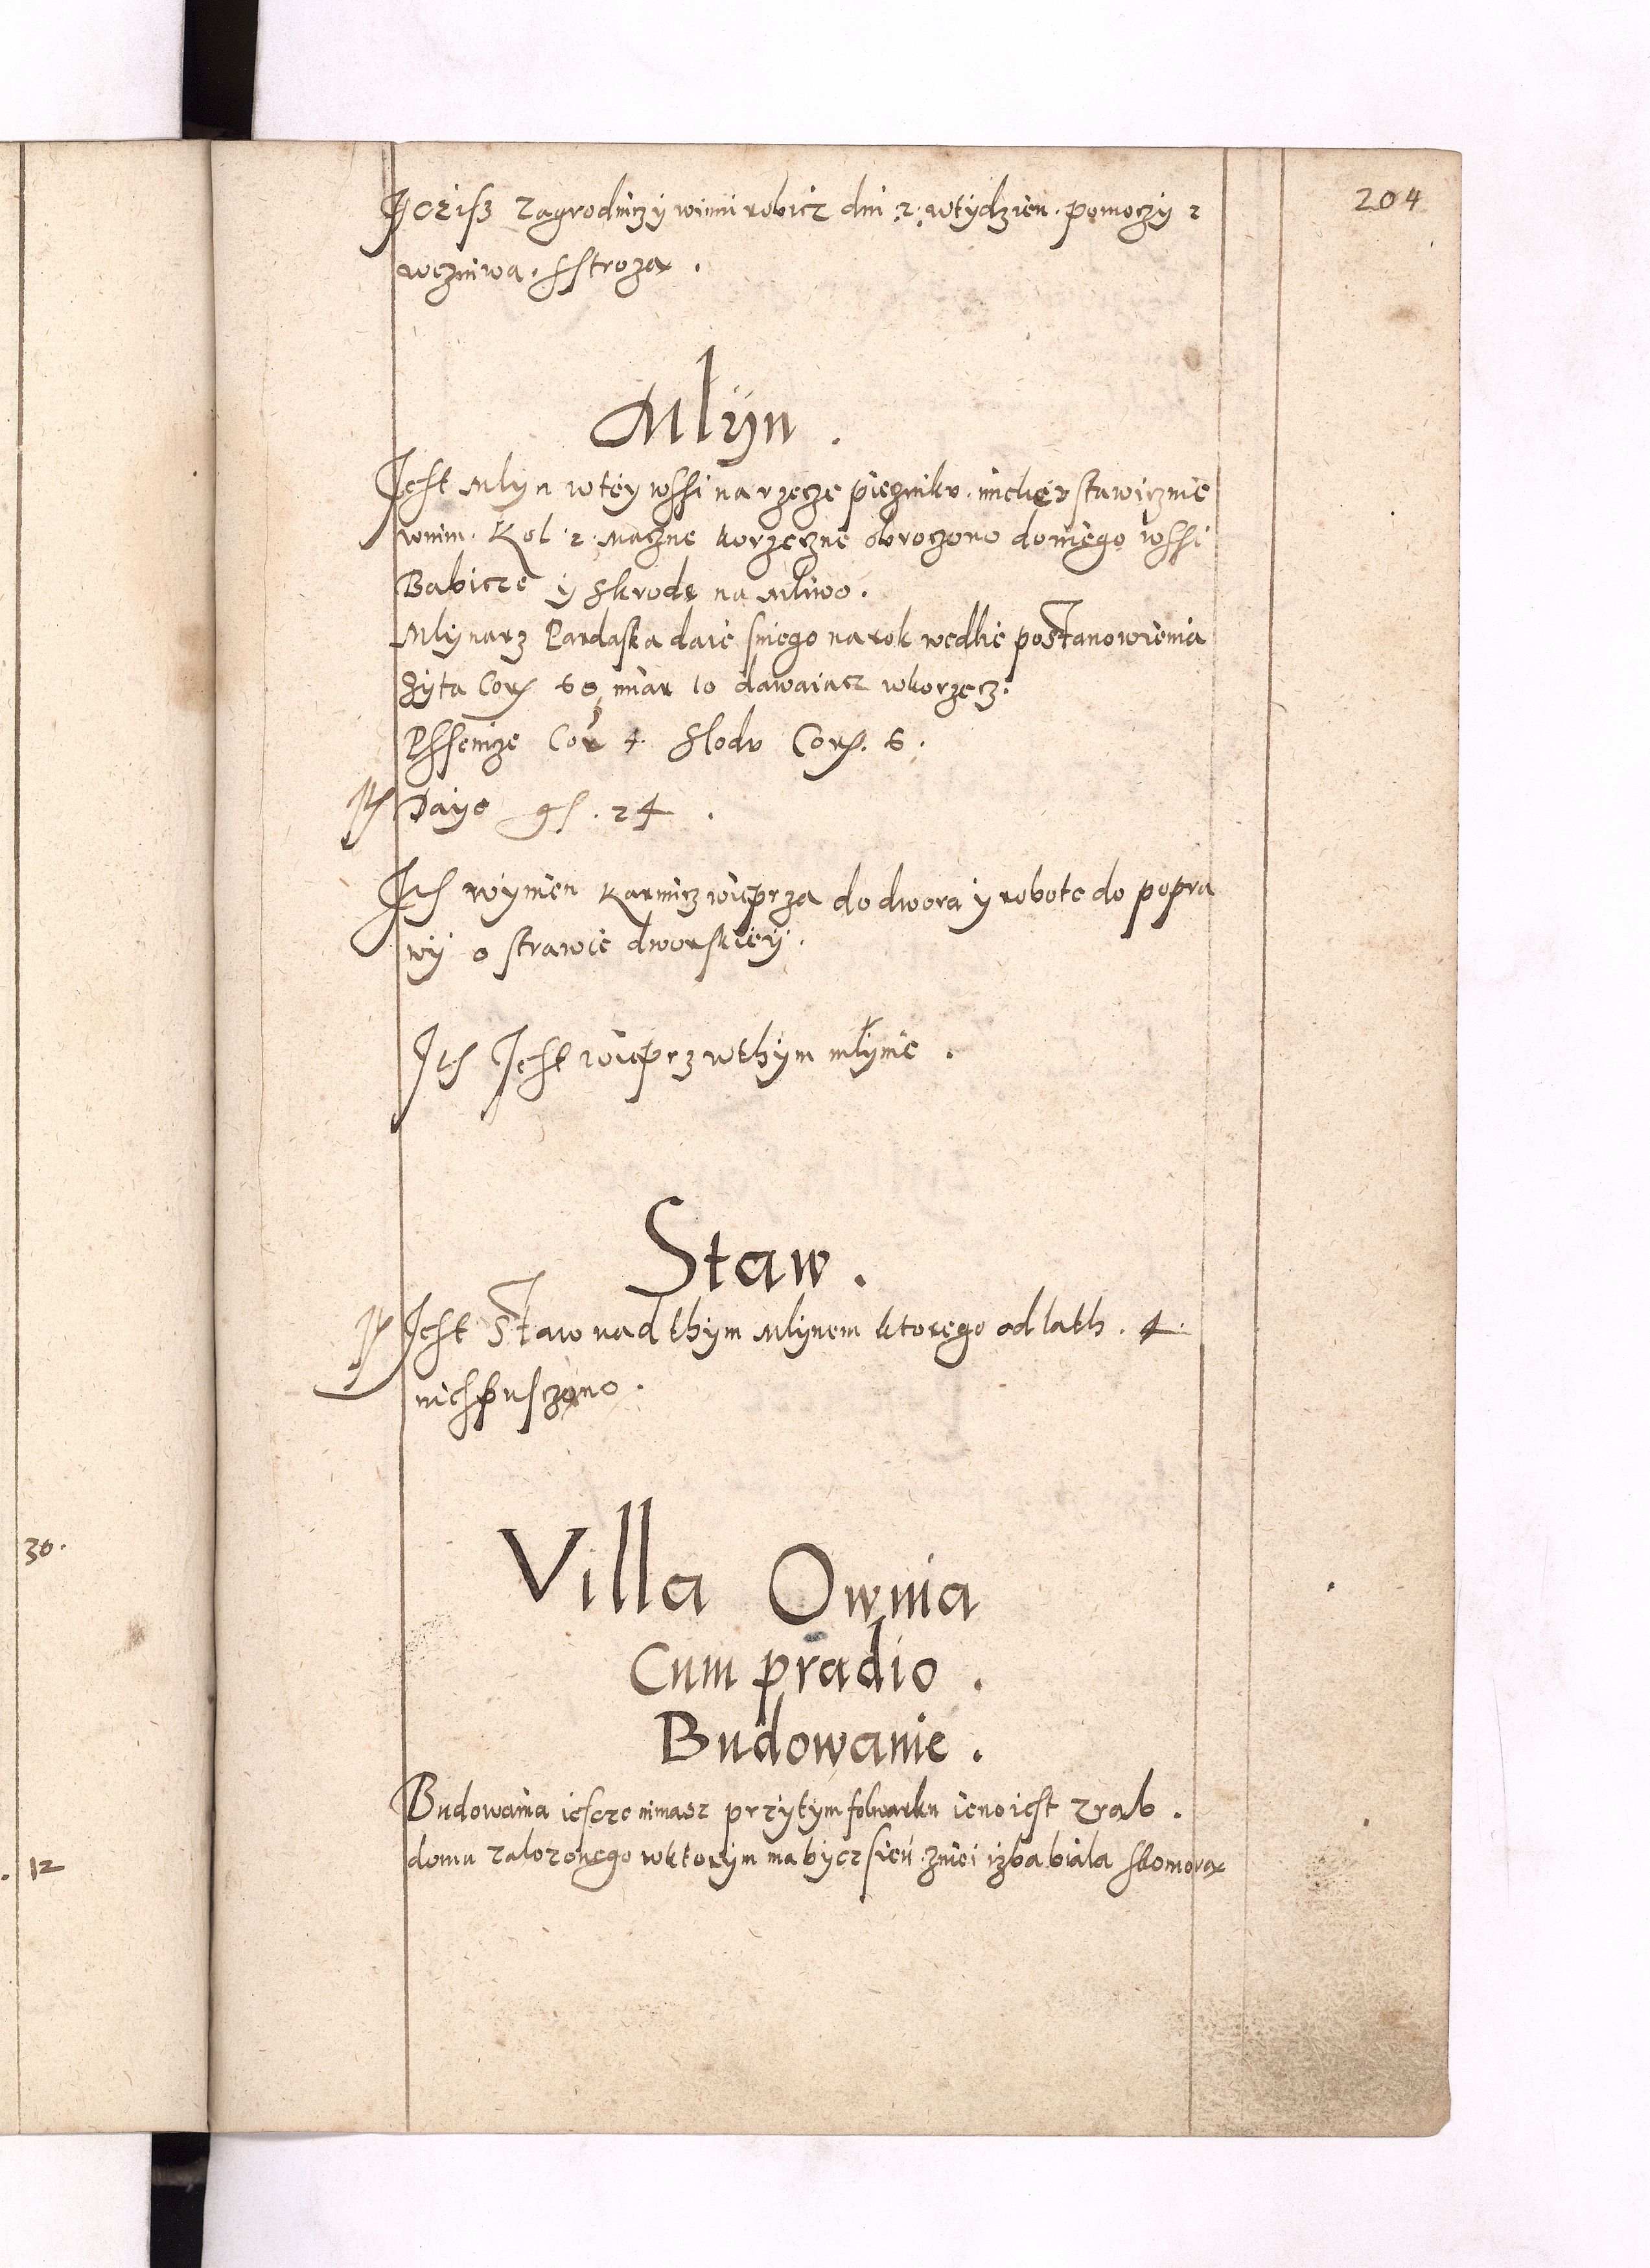 204
Jcziſz zagrodniczy winni robicz dni 2 wtydzien. pomoczy 2
wezniwa. sstroza.
Mlyn.
Jest Mlyn wtey wssi na rzecze piezniku. miele vstawicznie
wnim. Kol 2. maczne korzeczne obroczono doniego wssi
Babicze y skrode na mliwo.
Mlynarz Pardaska daie sniego na rok wedlie postanowienia
Zyta Cor 60 miar 10 dawaiacz wkorzecz.
Pssenicze Cor 4. Slodu Cor. 6.
It Daye gs. 24.
Ite wynien karmicz wieprza do dwora y robote do popra
wy o strawie dworskiey.
Ite Jest wieprz wthym mlynie.
Staw.
It Jest Staw nad thym Mlynem ktorego od lath. 4.
niespusczono.
Villa Ownia
Cum pradio.
Budowanie.
Budowania iescze nimasz przytym folwarku ieno iest zrab.
domu zalozonego wktorym ma bycz sien zniei izba biala skomora
30.
. 12